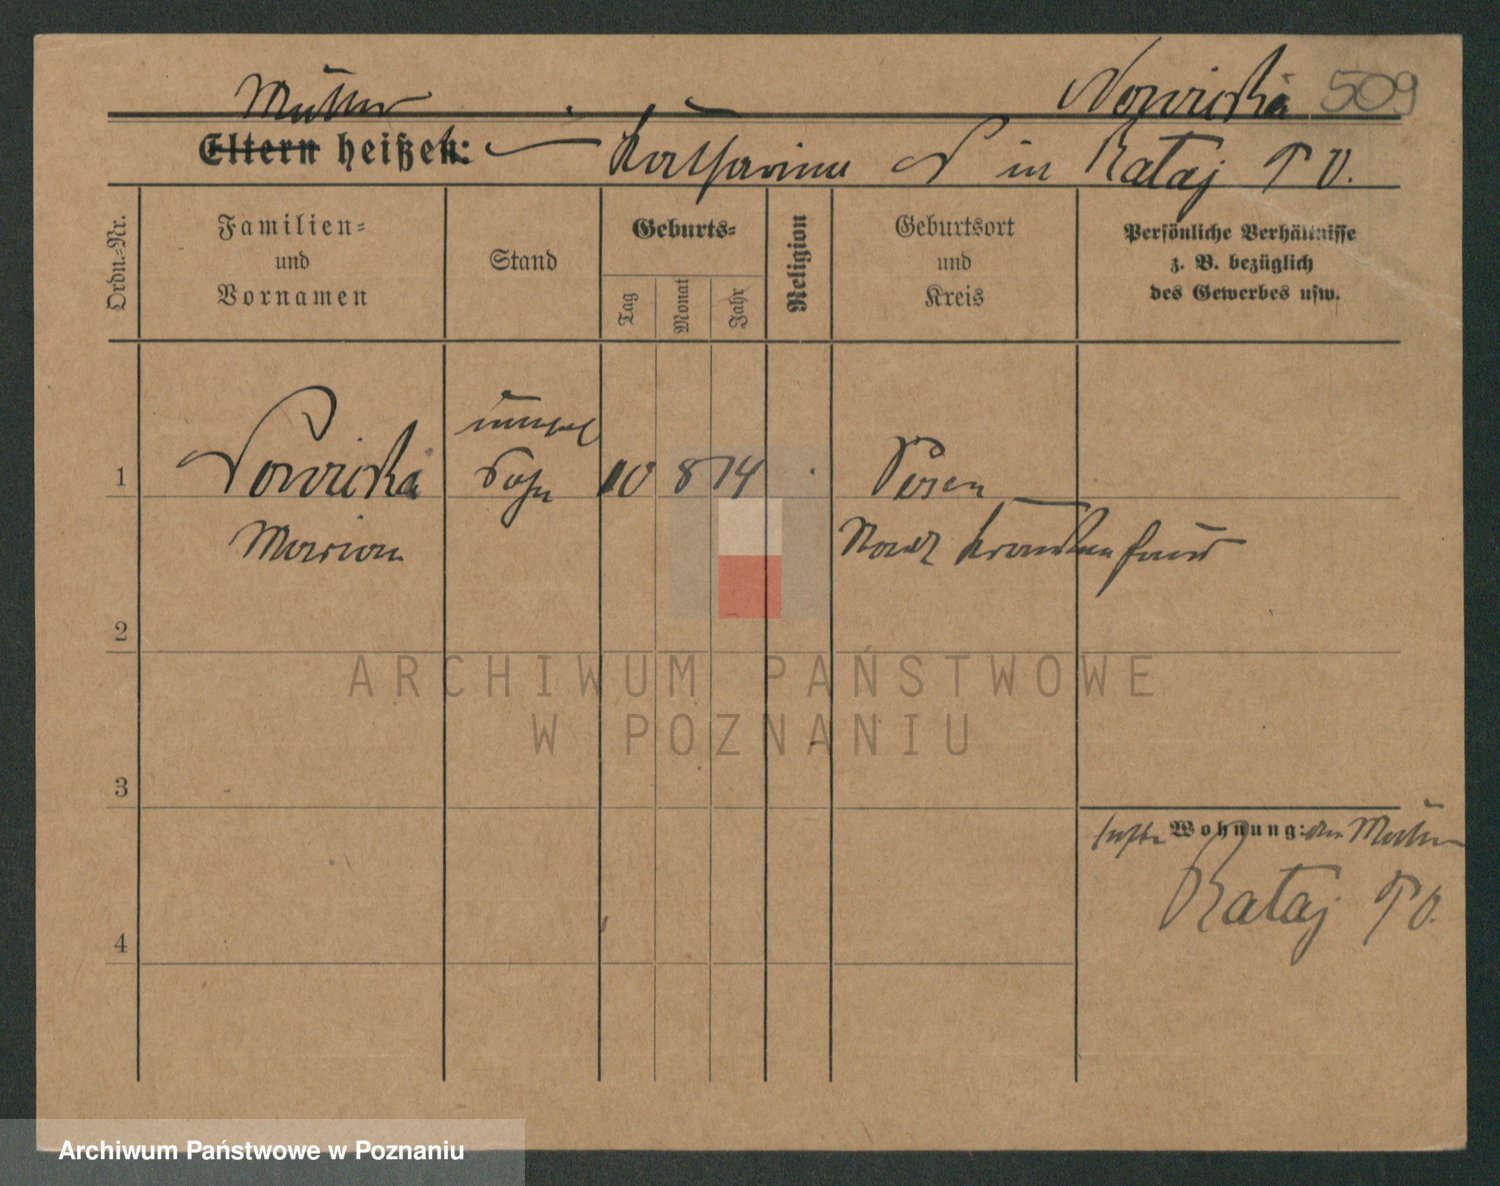 Mutter
Nowicka 509
Eltern heißen: Katharina N in Rataj PO.
Ordn.-Nr.
Familien-
und
Vornamen
Stand
Geburts-
Tag
Monat
Jahr
Religion
Geburtsort
und
Kreis
Persönliche Verhältnisse
z. B. bezüglich
des Gewerbes usw.
1
Nowicka
Marian
unehel
Sohn
10 8 14
Posen
Stadt Krankenhaus
2
3
4
Wohnung: der Mutter
Rataj PO.
ARCHIWUM PAŃSTWOWE
W POZNANIU
Archiwum Państwowe w Poznaniu